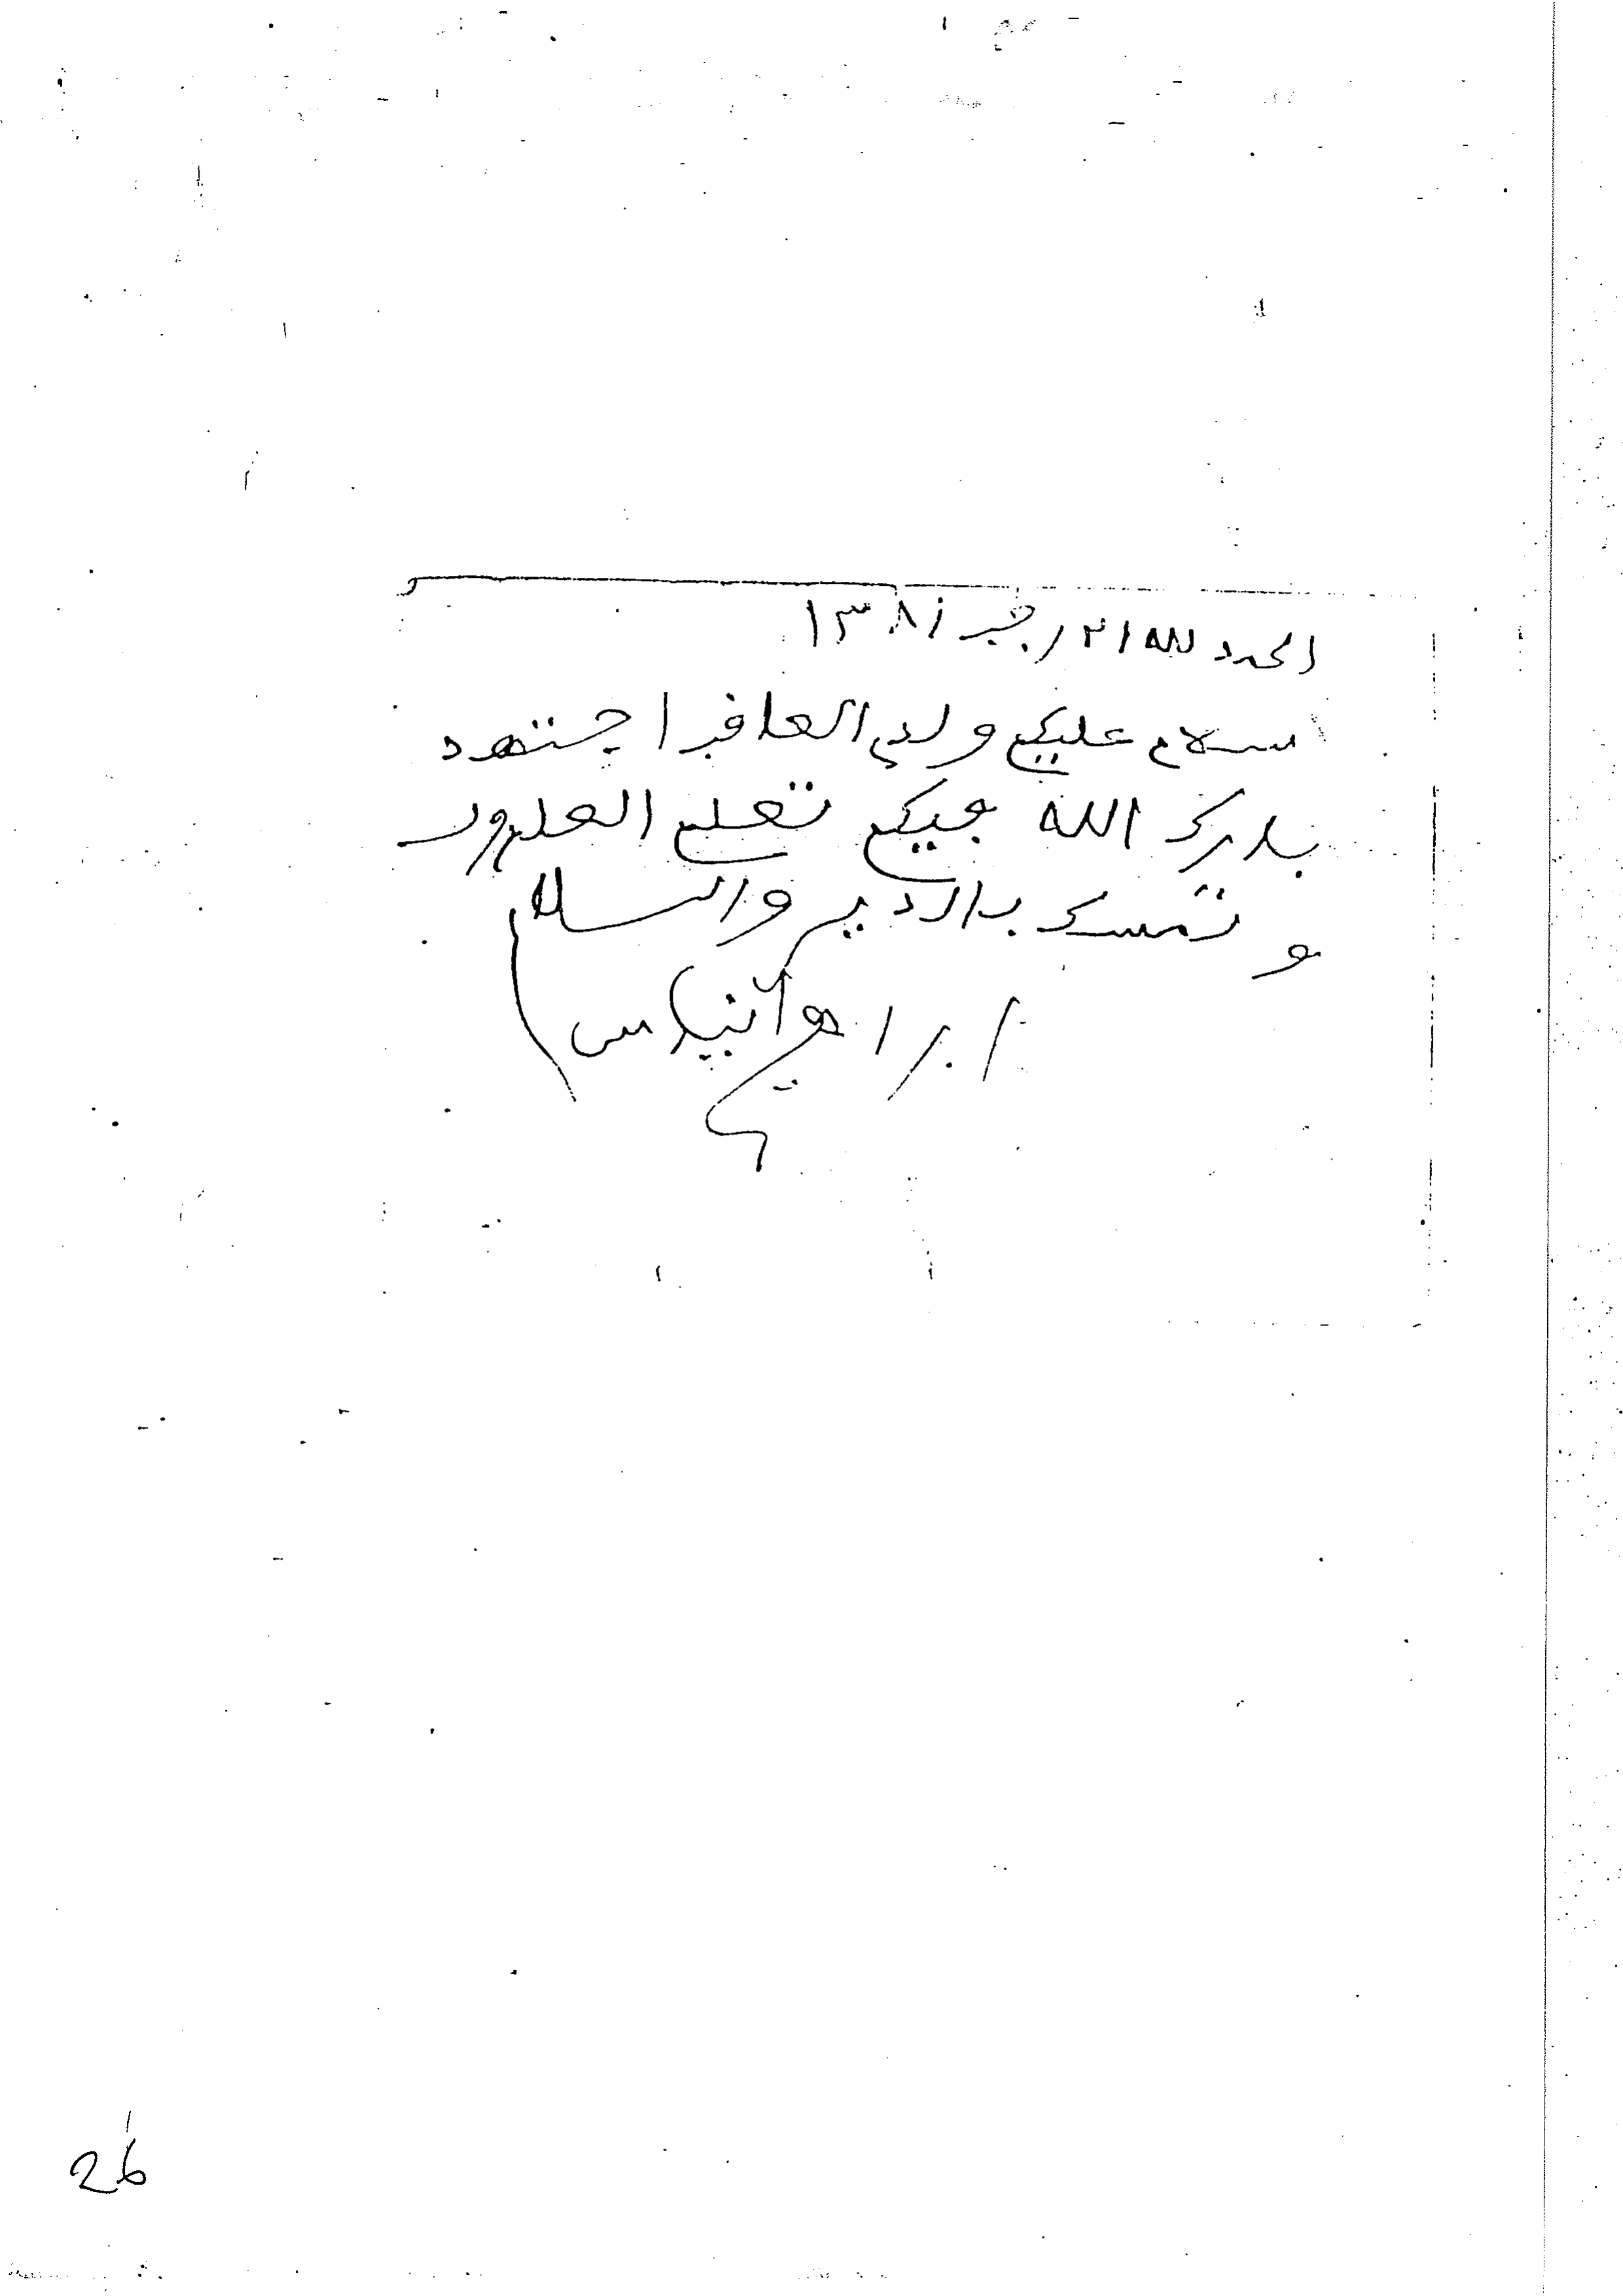 الحمد لله ٢١ رجب ١٣٨١
سلام عليكم ولدي العاقب اجتهد
بارك الله فيكم تعلم العلم ود
وتمسك بالدين والسلام
ابراهيم انياس
26